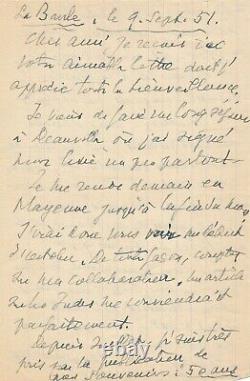 La Baule, le 9. Sept. 51.
Cher ami, je reçois ici
votre aimable lettre dont j'
apprécie toute la bienveillance.
Je viens de faire un long séjour
à Deauville où j'ai signé
mon livre un peu partout.
Je me rends demain en
Mayenne jusqu'à la fin du mois
J'irai donc vous voir au début
d'octobre. De toute façon, comptez
sur ma collaboration, un article
sur les Indes me conviendrait
parfaitement.
Depuis
pris par la publication de
mes Souvenirs : 50 ans